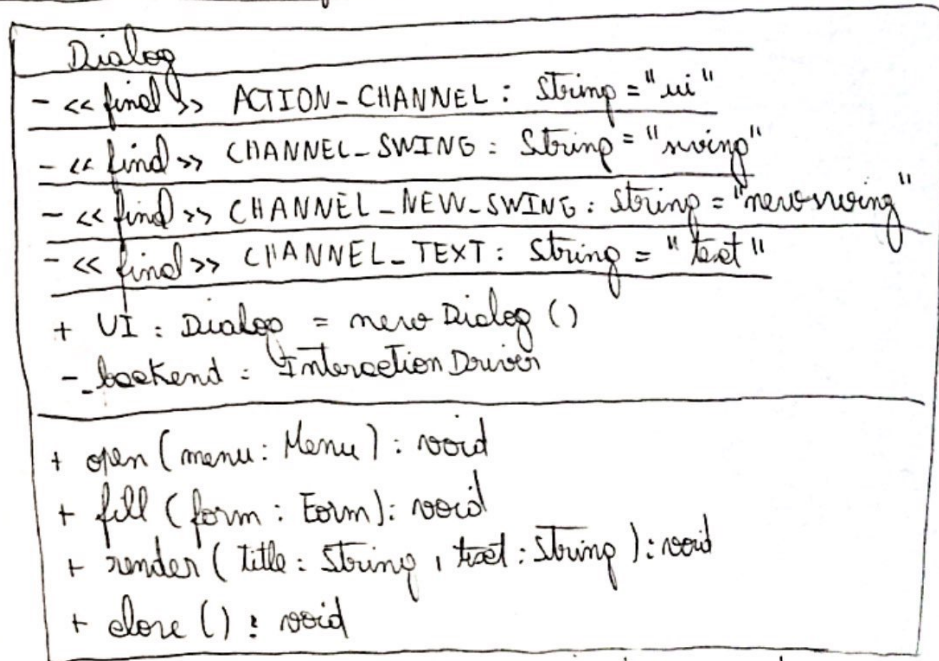 Dialog
- << final >> ACTION_CHANNEL : String = "ui"
- << final >> CHANNEL_SWING : String = "swing"
- << final >> CHANNEL_NEW_SWING : String = "newswing"
- << final >> CHANNEL_TEXT : String = "text"
+ UI : Dialog = new Dialog ()
- _backend : InteractionDriver
+ open (menu : Menu) : void
+ fill (form : Form) : void
+ render ( title : String , text : String ) : void
+ close () : void